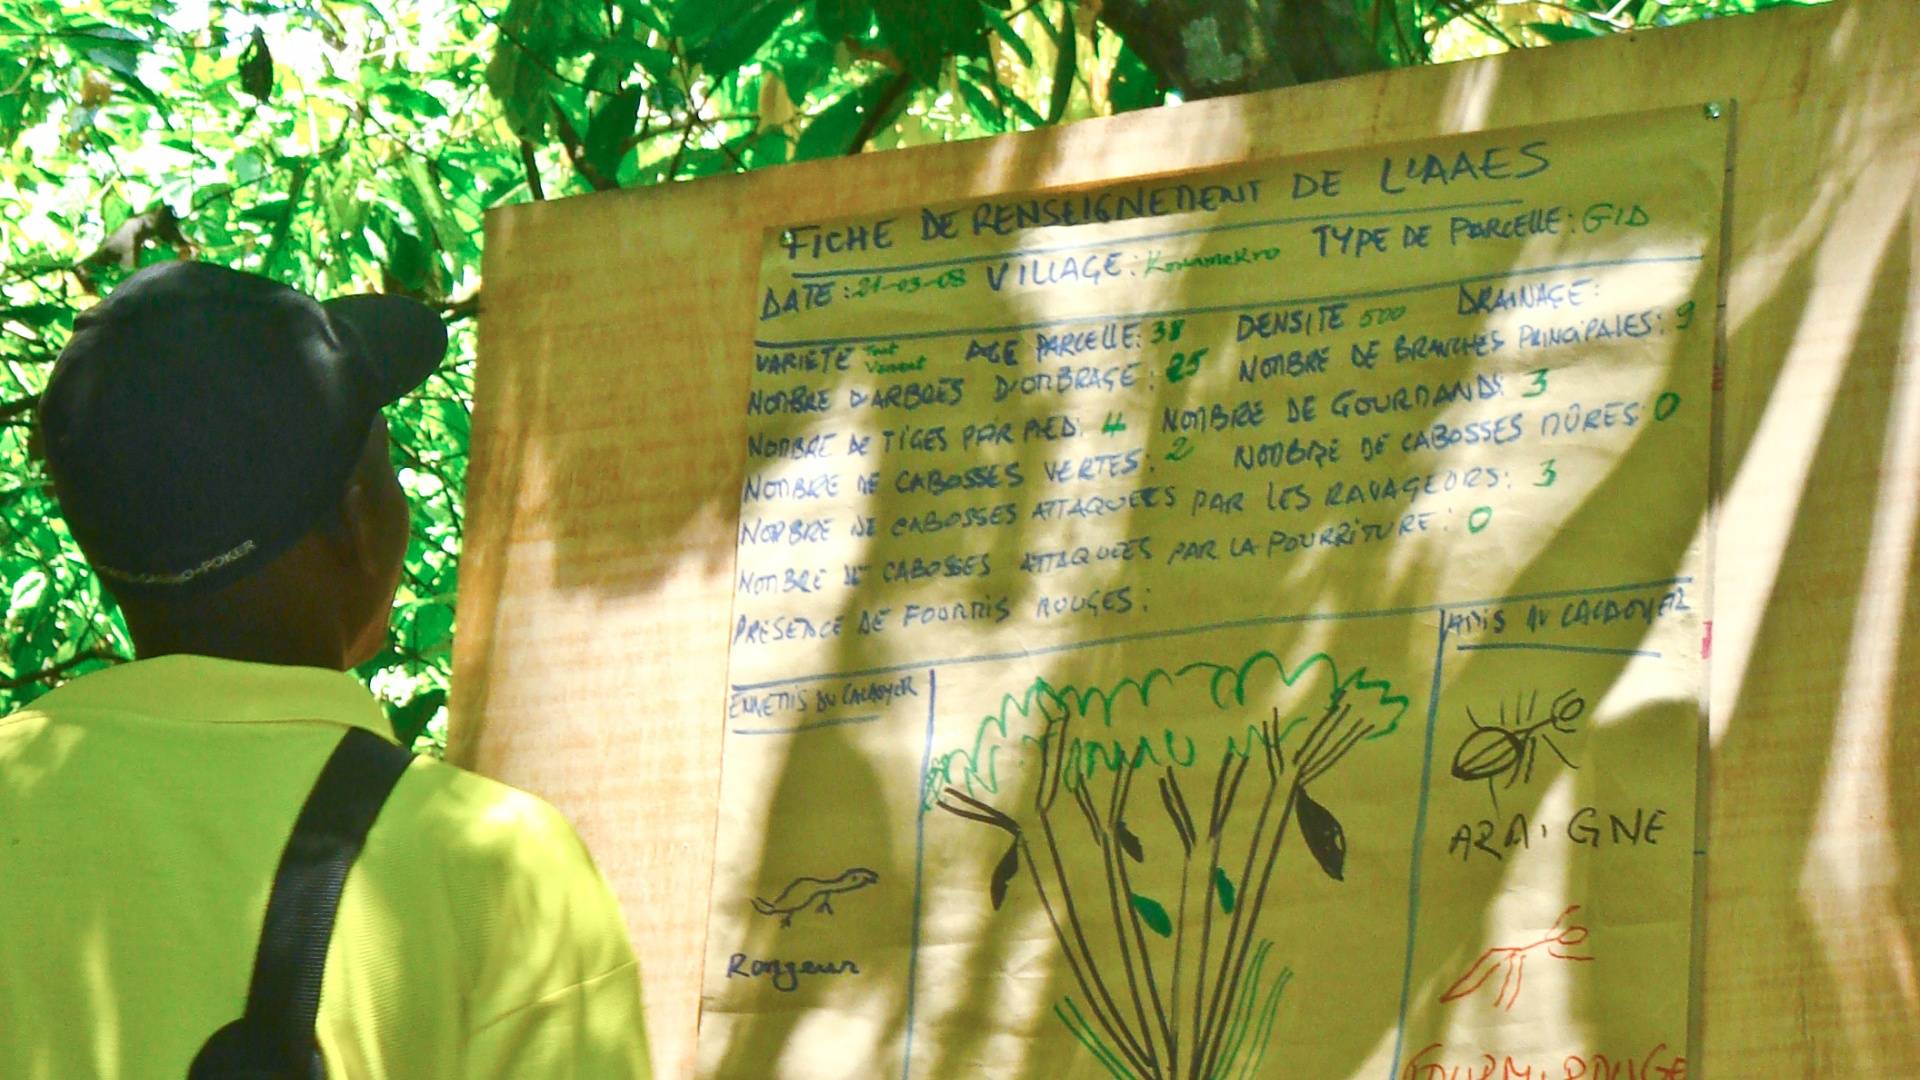 FICHE DE RENSEIGNEMENT DE L'AAES
DATE: 21-03-08 VILLAGE: Konamekro TYPE DE PARCELLE: GID
VARIETE Tout Venant AGE PARCELLE: 38 DENSITE 500 DRAINAGE:
NOMBRE D'ARBRES D'OMBRAGE: 25 NOMBRE DE BRANCHES PRINCIPALES: 9
NOMBRE DE TIGES PAR PIED: 4 NOMBRE DE GOURMANDS: 3
NOMBRE DE CABOSSES VERTES: 2 NOMBRE DE CABOSSES MÛRES: 0
NOMBRE DE CABOSSES ATTAQUEES PAR LES RAVAGEURS: 3
NOMBRE DE CABOSSES ATTAQUEES PAR LA POURRITURE: 0
PRESENCE DE FOURMIS ROUGES:
ENNEMIS DU CACAOYER
AMIS DU CACAOYER
ARAIGNE
Rongeur
FOURMI ROUGE
-POKER